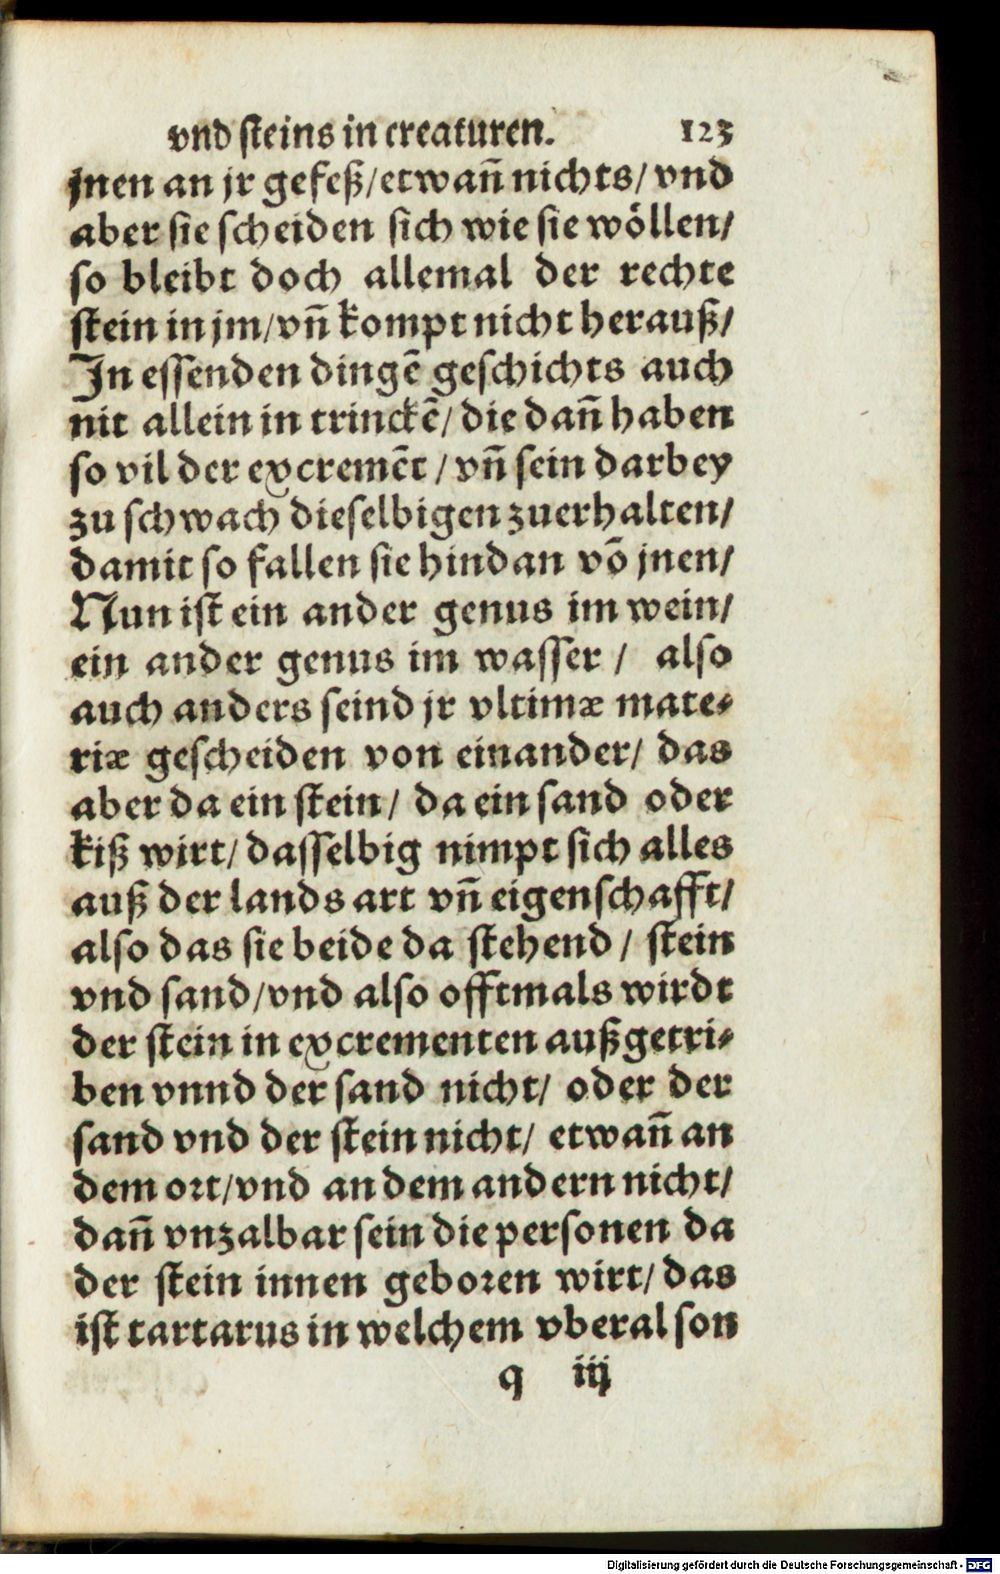 vnd steins in creaturen. 123
jnen an jr gefeß/etwañ nichts/ vnd
aber sie scheiden sich wie sie wöllen/
so bleibt doch allemal der rechte
stein in jm/vñ kompt nicht herauß/
In essenden dingē geschichts auch
nit allein in trinckē/ die dañ haben
so vil der excremēt / vñ sein darbey
zu schwach dieselbigen zuerhalten/
damit so fallen sie hindan vō jnen/
Nun ist ein ander genus im wein/
ein ander genus im wasser / also
auch anders seind jr vltimæ mate⸗
riæ gescheiden von einander/ das
aber da ein stein/ da ein sand oder
kiß wirt/ dasselbig nimpt sich alles
auß der lands art vñ eigenschafft/
also das sie beide da stehend / stein
vnd sand/vnd also offtmals wirdt
der stein in excrementen außgetri⸗
ben vnnd der sand nicht/ oder der
sand vnd der stein nicht/ etwañ an
dem ort/vnd an dem andern nicht/
dañ vnzalbar sein die personen da
der stein innen geboren wirt/ das
ist tartarus in welchem vberal son
q iij
Digitalisierung gefördert durch die Deutsche Forschungsgemeinschaft - DFG